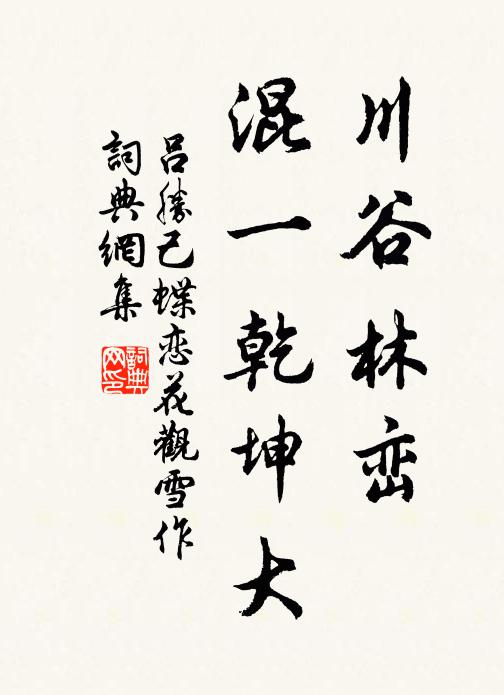 川谷林峦
混一乾坤大
吕勝己蝶恋花觀雪作
詞典網集
詞典网印